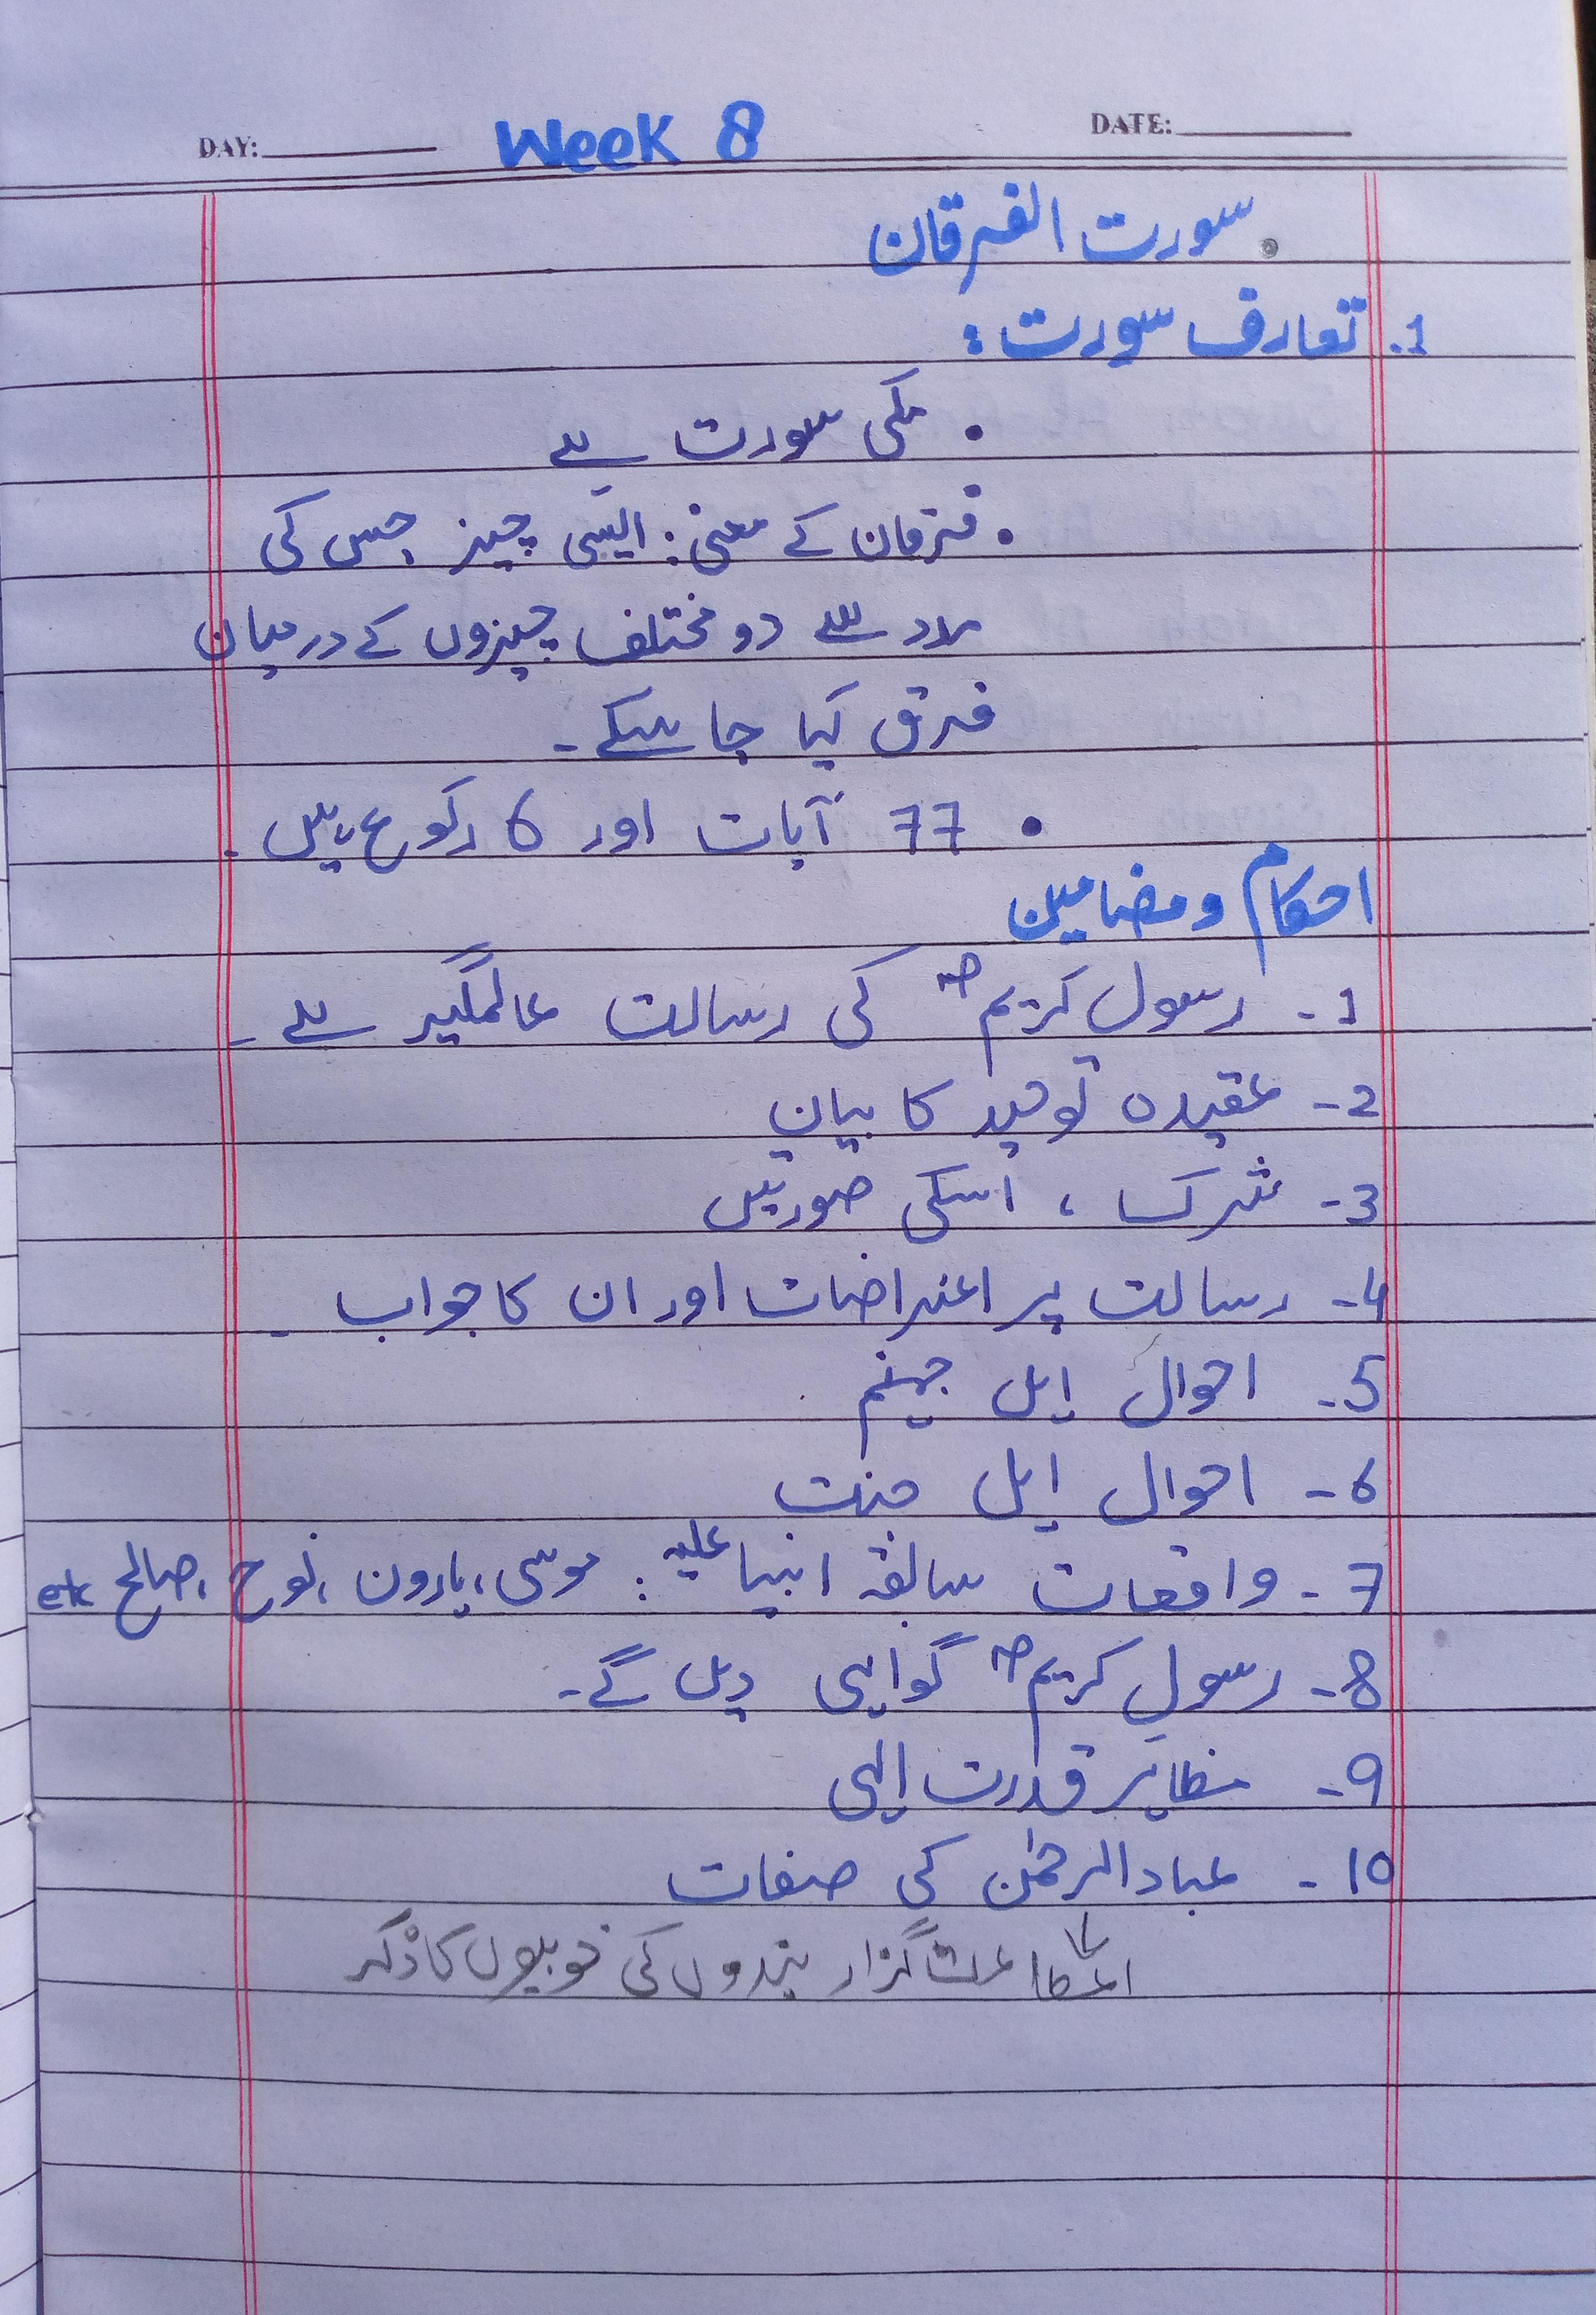 DAY: Week 8 DATE:
سورت الفرقان
1. تعارف سورت:
• مکی سورت ہے
• فرقان کے معنی: ایسی چیز جس کی
مدد سے دو مختلف چیزوں کے درمیان
فرق کیا جا سکے۔
• 77 آیات اور 6 رکوع ہیں۔
احکام و مضامین
1- رسول کریمؐ کی رسالت عالمگیر ہے۔
2- عقیدہ توحید کا بیان
3- شرک، اسکی صورتیں
4- رسالت پر اعتراضات اور ان کا جواب۔
5- احوال اہل جہنم
6- احوال اہل جنت
7- واقعات سابقہ انبیا علیہ: موسی، ہارون، نوح، صالح etc
8- رسولِ کریمؐ گواہی دیں گے۔
9- مظاہر قدرت الہی
10- عباد الرحمٰن کی صفات
اطاعت گزار بندوں کی خوبیوں کا ذکر